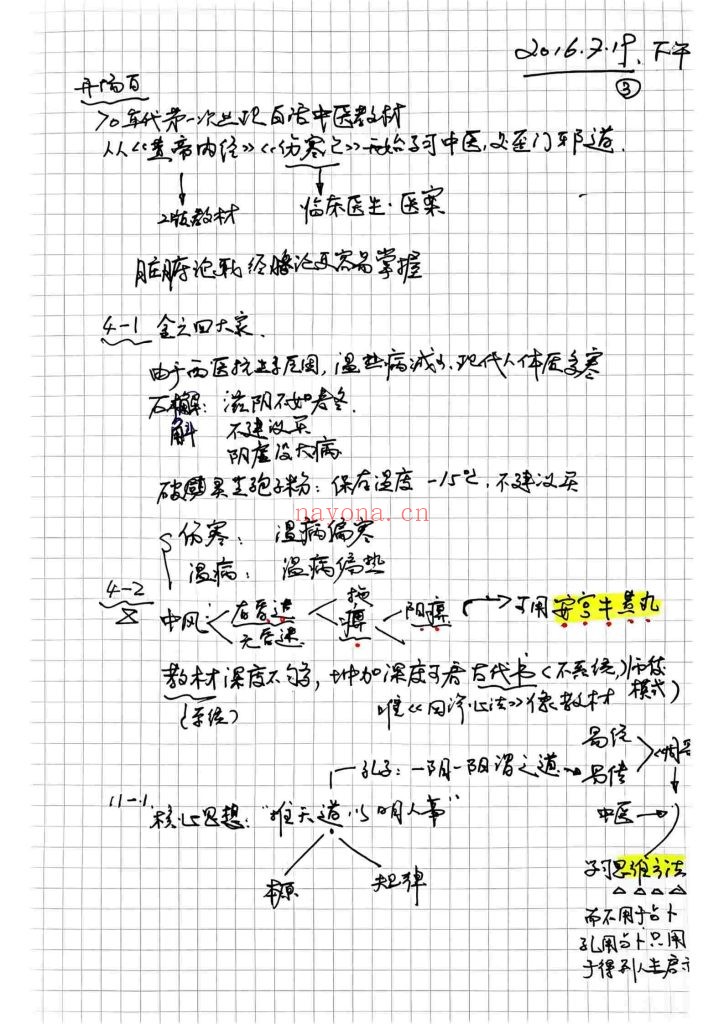 2016.7.19. 下午
③
开场白
70年代第一次出现白话中医教材
从《黄帝内经》《伤寒论》开始学习中医,
2版教材
临床医生·医案
脏腑论较经络论更容易掌握
4-1 金元四大家.
由于西医抗生素原因, 温热病减少, 现代人体质多寒
石斛: 滋阴不如麦冬.
斛 不建议买
阴虚没大病
破壁灵芝孢子粉: 保存温度 -15℃, 不建议买
nayona.cn
伤寒: 温病偏寒
温病: 温病偏热
4-2
中风
有昏迷
无昏迷
脱
痹
阴痹
可用 安宫牛黄丸
教材深度不够, 增加深度可看古代书(不系统,师传模式)
(系统)
唯《四诊心法》像教材
易经
孔子: 一阴一阳谓之道
易传
周易
11-1. 核心思想: "推天道以明人事"
中医
本原
规律
学习思维方法
而不用于占卜
孔用占卜只用
于得到人生启示